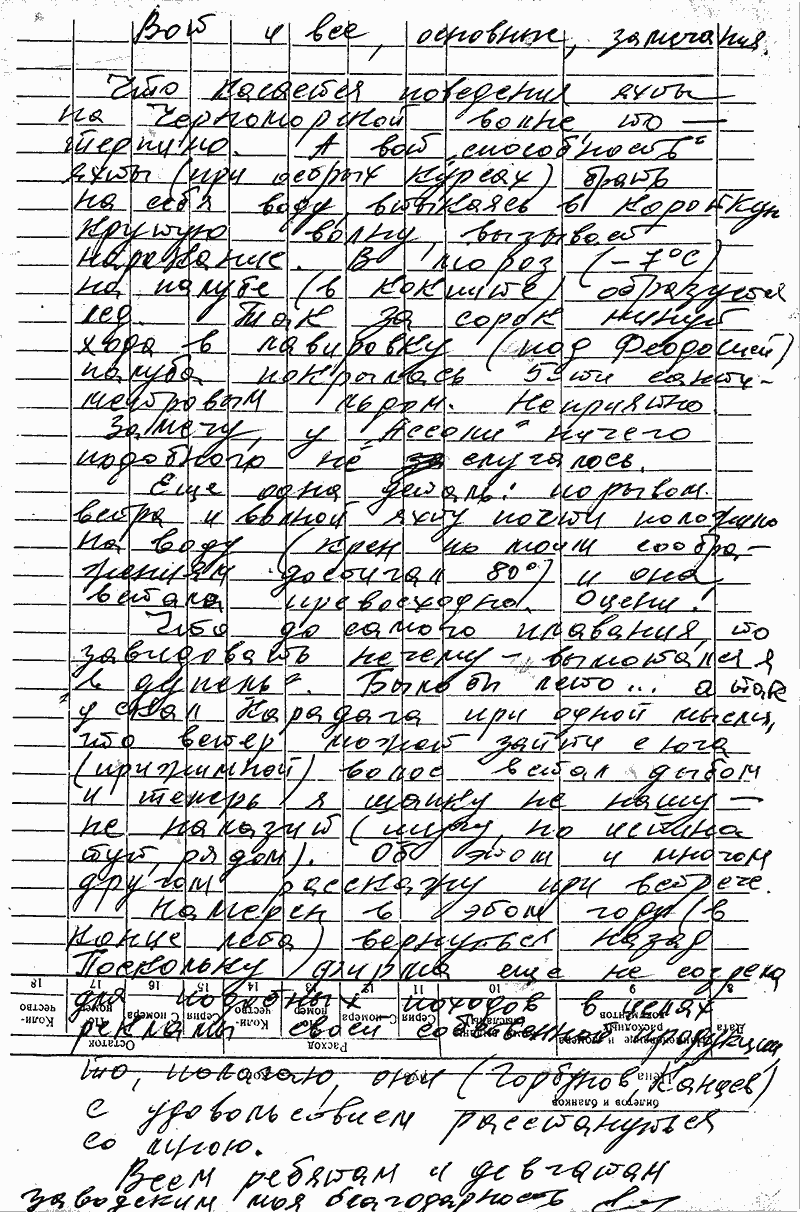 Вот и все, основные, замечания.
Что касается поведения яхты
на Черноморской волне то —
терпимо. А вот „способность"
яхты (при острых курсах) брать
на себя воду, втыкаясь в короткую
крутую волну, вызывает
нарекание. В мороз (–7°С)
на палубе (в кокпите) образуется
лед. Так за сорок минут
хода в лавировку (под Феодосией)
палуба покрылась 5яти санти-
метровым льдом. Неприятно.
Замечу, у „Ассоли" ничего
подобного не случалось.
Еще одна деталь: порывом
ветра и волной яхту почти положило
на воду (крен по моим сообра-
жениям достигал 80°) и она
встала превосходно. Оцени!
Что до самого плавания, то
завидовать нечему – вымотался я
„в дупель". Было бы лето... а так
у скал Карадага при одной мысли,
что ветер может зайти с юга
(прижимной) волос встал дыбом
и теперь я шапку не ношу —
не налазит (шучу, но истина
тут, рядом). Об этом и многом
другом расскажу при встрече.
Намерен в этом году (в
конце лета) вернуться назад
Поскольку фирма еще не созрела
для подобных походов в целях
рекламы своей собственной продукции,
то, полагаю, они (Горбунов, Канцев)
с удовольствием расстануться
со мною.
Всем ребятам и девчатам
заводским моя благодарность
18 17 16 15 14 13 12 11 10 9 8
Коли-чество С номера Серия Коли-чество Серия С номера Дата
Остаток Расход
билетов и бланков